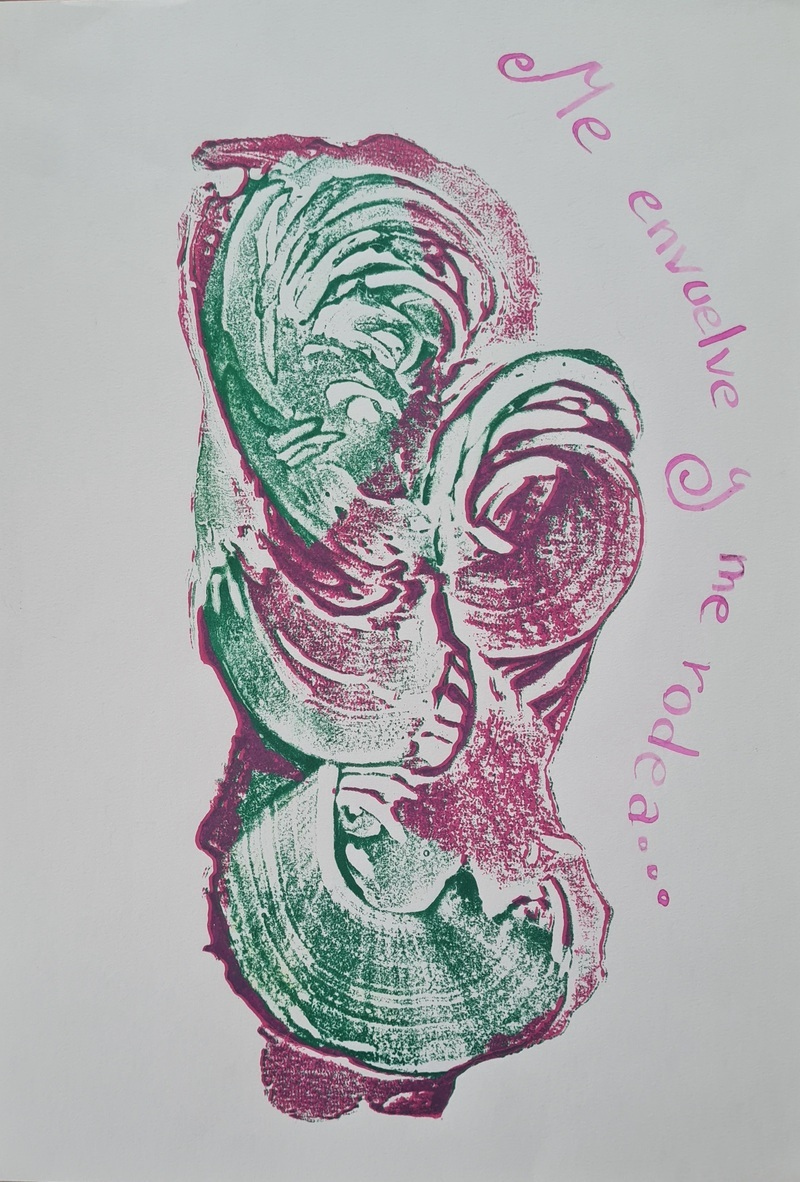 Me envuelve y me rodea...